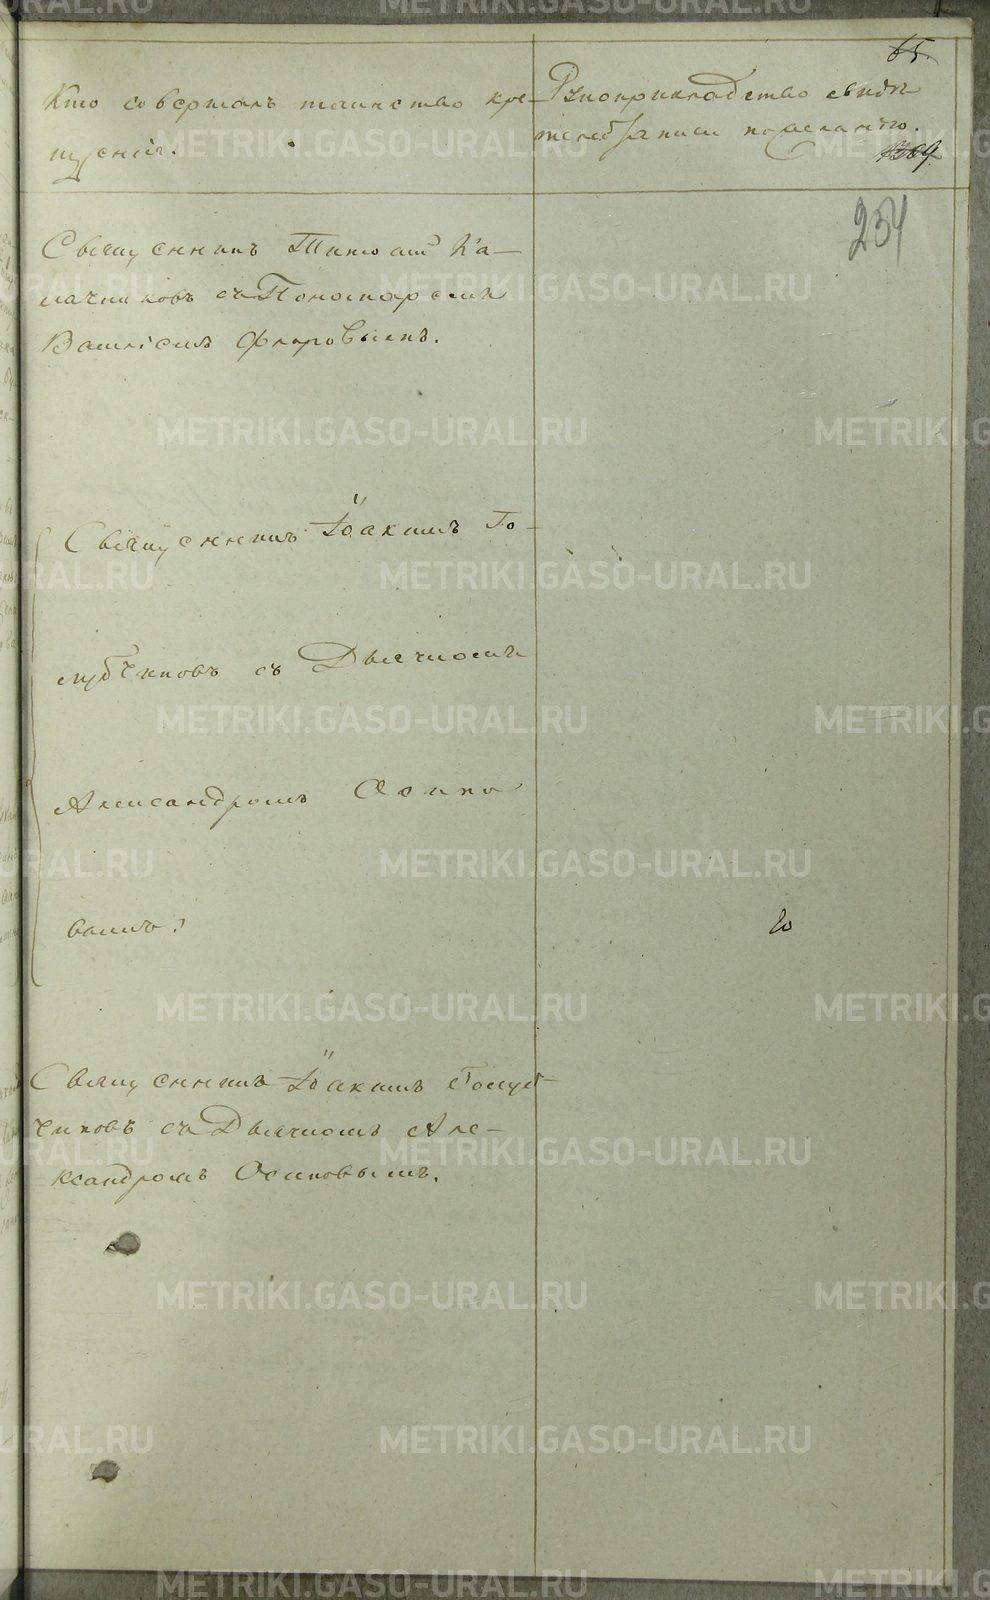 65.
Кто совершалъ таинство кре-
щенія.
Рукоприкладство свидѣ
телей записи по желанію.
1309
254
Священникъ Ка-
лачниковъ съ Пономаремъ
Василіемъ Флоровымъ.
Священникъ Іоакимъ Го-
лубчиковъ съ Дьячкомъ
Александромъ Осипо
вымъ.
Священникъ Іоакимъ Голуб-
чиковъ съ Дьячкомъ Але-
ксандромъ Осиповымъ.
METRIKI.GASO-URAL.RU